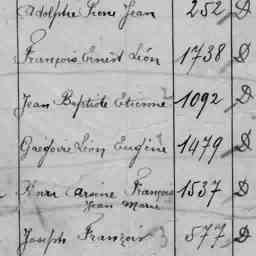 Adolphe Pierre Jean 252 D
François Ernest Léon 1738 D
Jean Baptiste Etienne 2 1092 D
Grégoire Léon Eugène 1479 D
Henri Arsène François 1537 D
Jean Marie
Joseph François 3 577 D